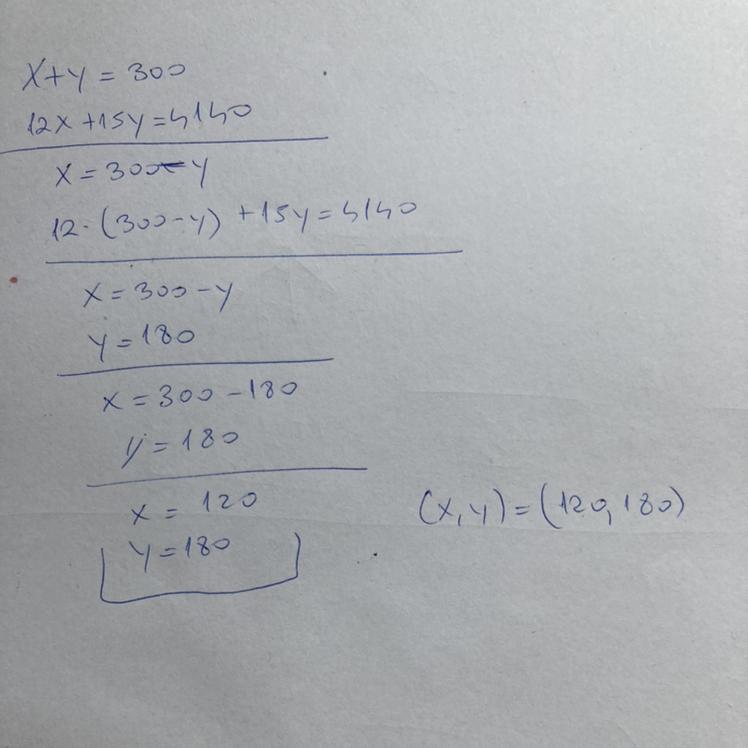 x+y=300
12x+15y=4140
x=300-y
12·(300-y)+15y=4140
x=300-y
y=180
x=300-180
y=180
x=120
y=180
(x,y)=(120,180)